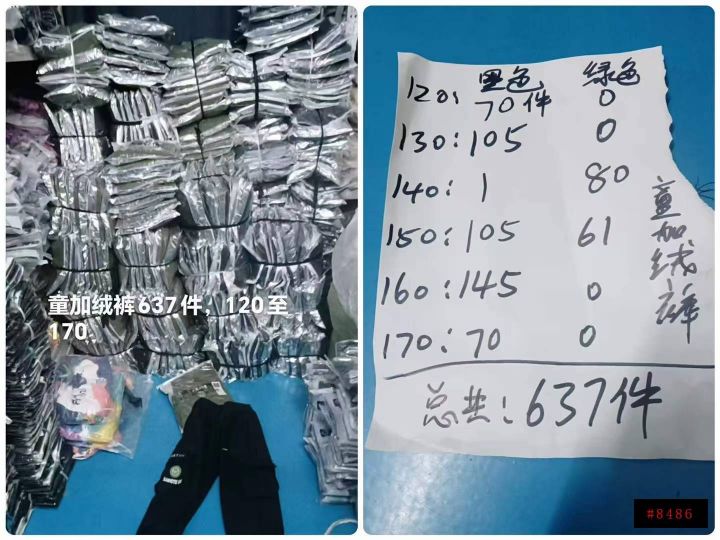 童加绒裤637件，120至
170
黑色 绿色
120: 70件 0
130: 105 0
140: 1 80
150: 105 61
160: 145 0
170: 70 0
童加绒裤
总共: 637件
#8486